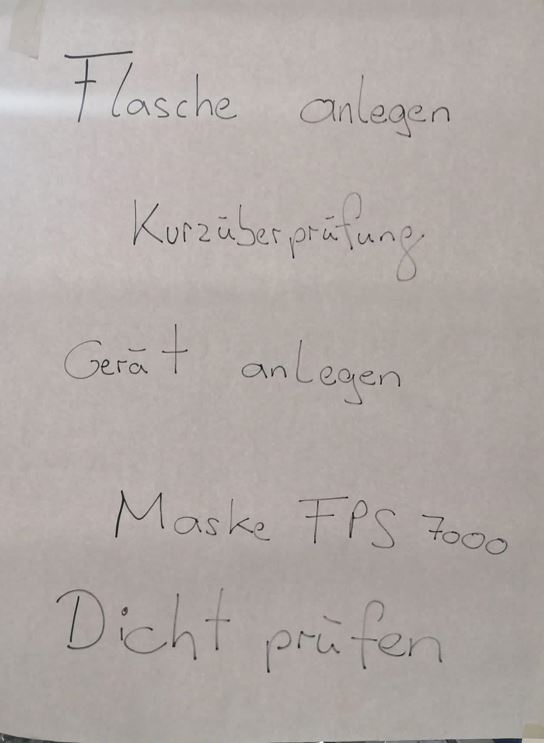 Flasche anlegen
Kurzüberprüfung
Gerät anlegen
Maske FPS 7000
Dicht prüfen